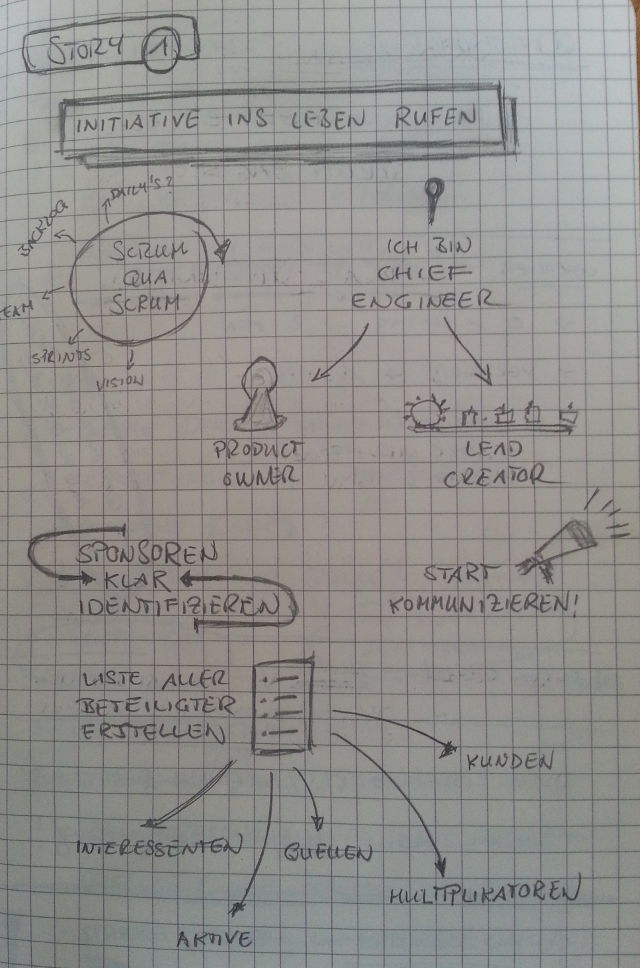 STORY 1
INITIATIVE INS LEBEN RUFEN
DAILY'S?
BACKLOG
SCRUM
QUA
SCRUM
TEAM
STRINTS
VISION
ICH BIN
CHIEF
ENGINEER
PRODUCT
OWNER
LEAD
CREATOR
SPONSOREN
KLAR
IDENTIFIZIEREN
START
KOMMUNIZIEREN!
LISTE ALLER
BETEILIGTER
ERSTELLEN
KUNDEN
INTERESSENTEN
QUELLEN
MULTIPLIKATOREN
AKTIVE